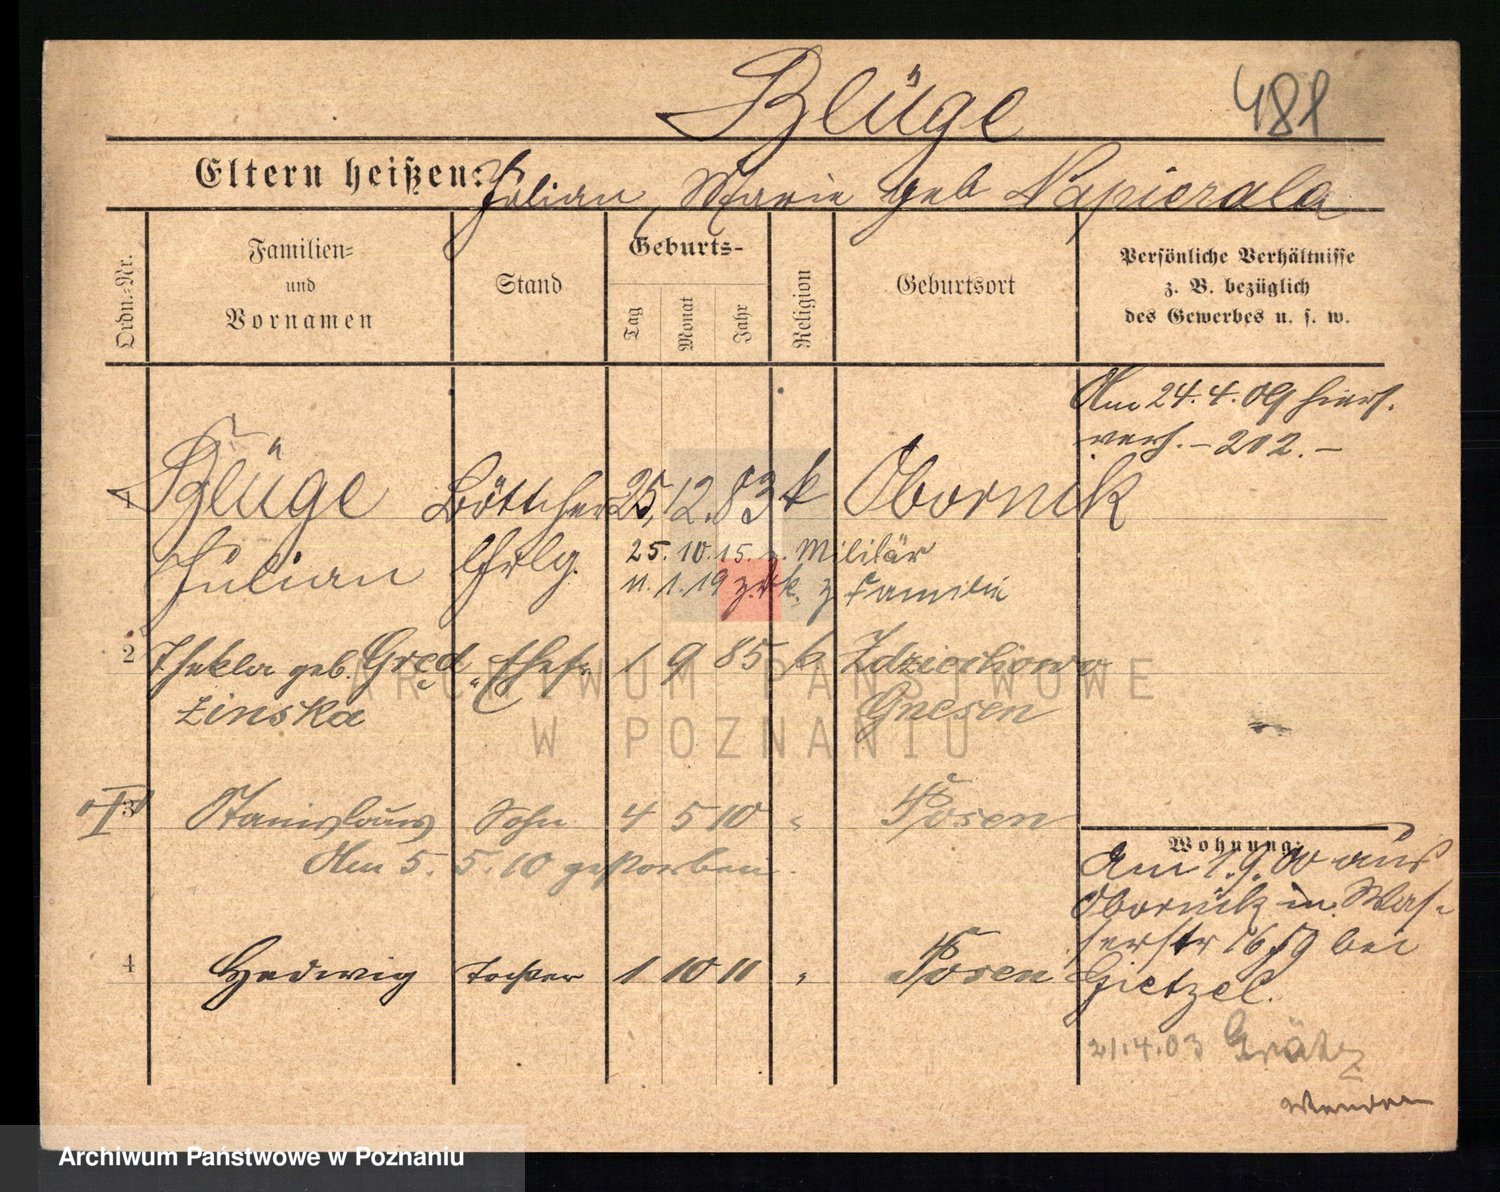 Blüge
481
Eltern heißen: Julian, Marie geb Napierala
Ordn.-Nr.
Familien-
und
Vornamen
Stand
Geburts-
Tag
Monat
Jahr
Religion
Geburtsort
Persönliche Verhältnisse
z. B. bezüglich
des Gewerbes u. s. w.
Am 24.4.09 hiers.
verh. – 202. –
1 Blüge Böttcher 25. 12. 83 k Obornik
Julian 25. 10. 15. z. Militär
11. 1. 19 zurk. z Familie
2 Thekla geb. Gred Ehefr 1 9 85 k Zdziechowo
zinska Gnesen
3 Stanislaus Sohn 4 5 10 " Posen
Am 5. 5. 10 gestorben.
4 Hedwig Tochter 1 10 11 " Posen
Wohnung:
Am 1.9.00 aus
Obornik in Was-
serstr 16/19 bei
Gietzel.
21.4.03 Grätz
Wenden
ARCHIWUM PAŃSTWOWE
W POZNANIU
Archiwum Państwowe w Poznaniu